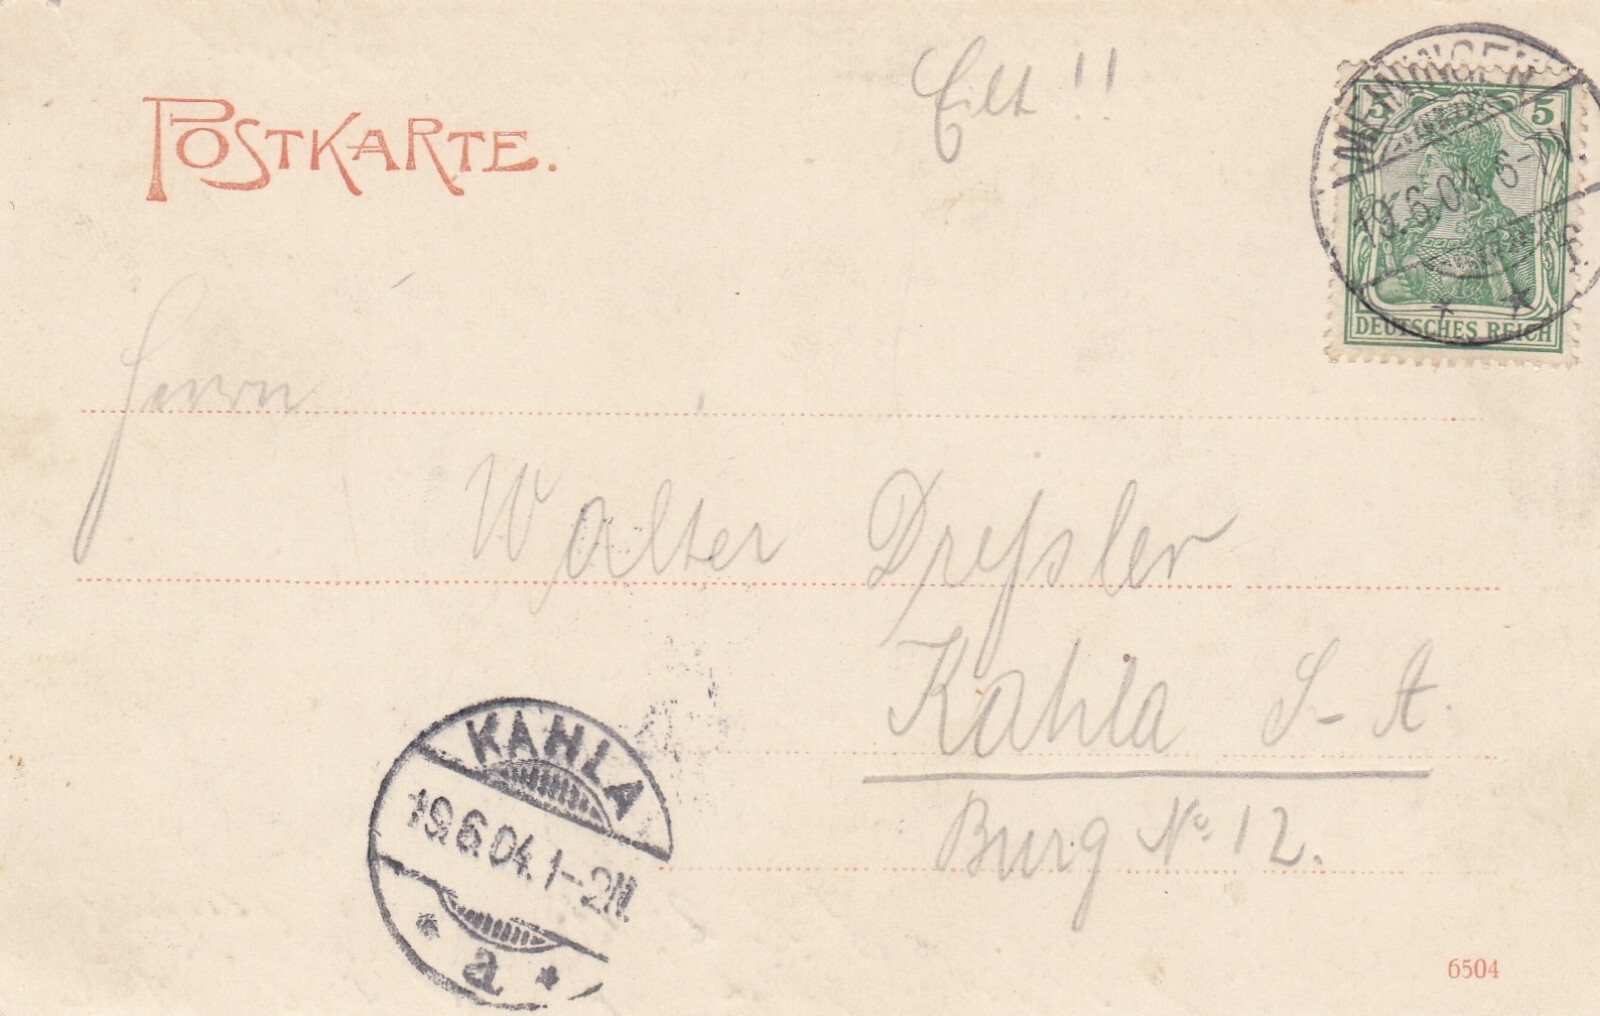 POSTKARTE.
Eilt !!
MEININGEN
19.6.04. 6-7 V.
5 5
DEUTSCHES REICH
Herrn
Walter Dreßler
Kahla S-A.
Burg No. 12.
KAHLA
19.6.04. 1-2 N.
* a *
6504